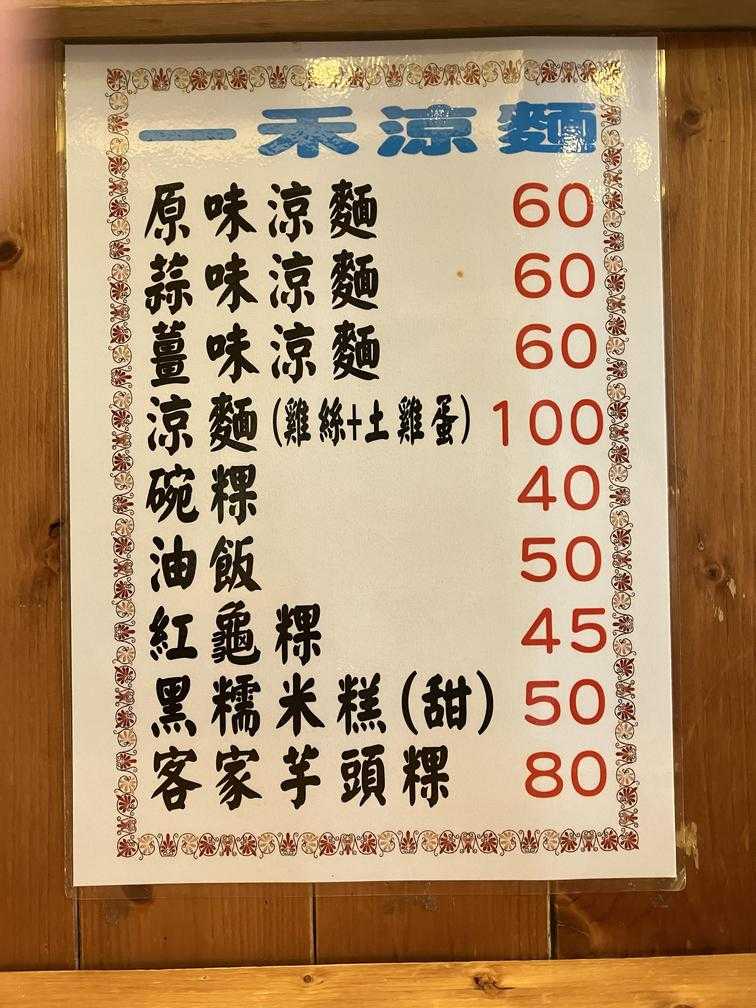 一禾涼麵
原味涼麵 60
蒜味涼麵 60
薑味涼麵 60
涼麵(雞絲+土雞蛋) 100
碗粿 40
油飯 50
紅龜粿 45
黑糯米糕(甜) 50
客家芋頭粿 80